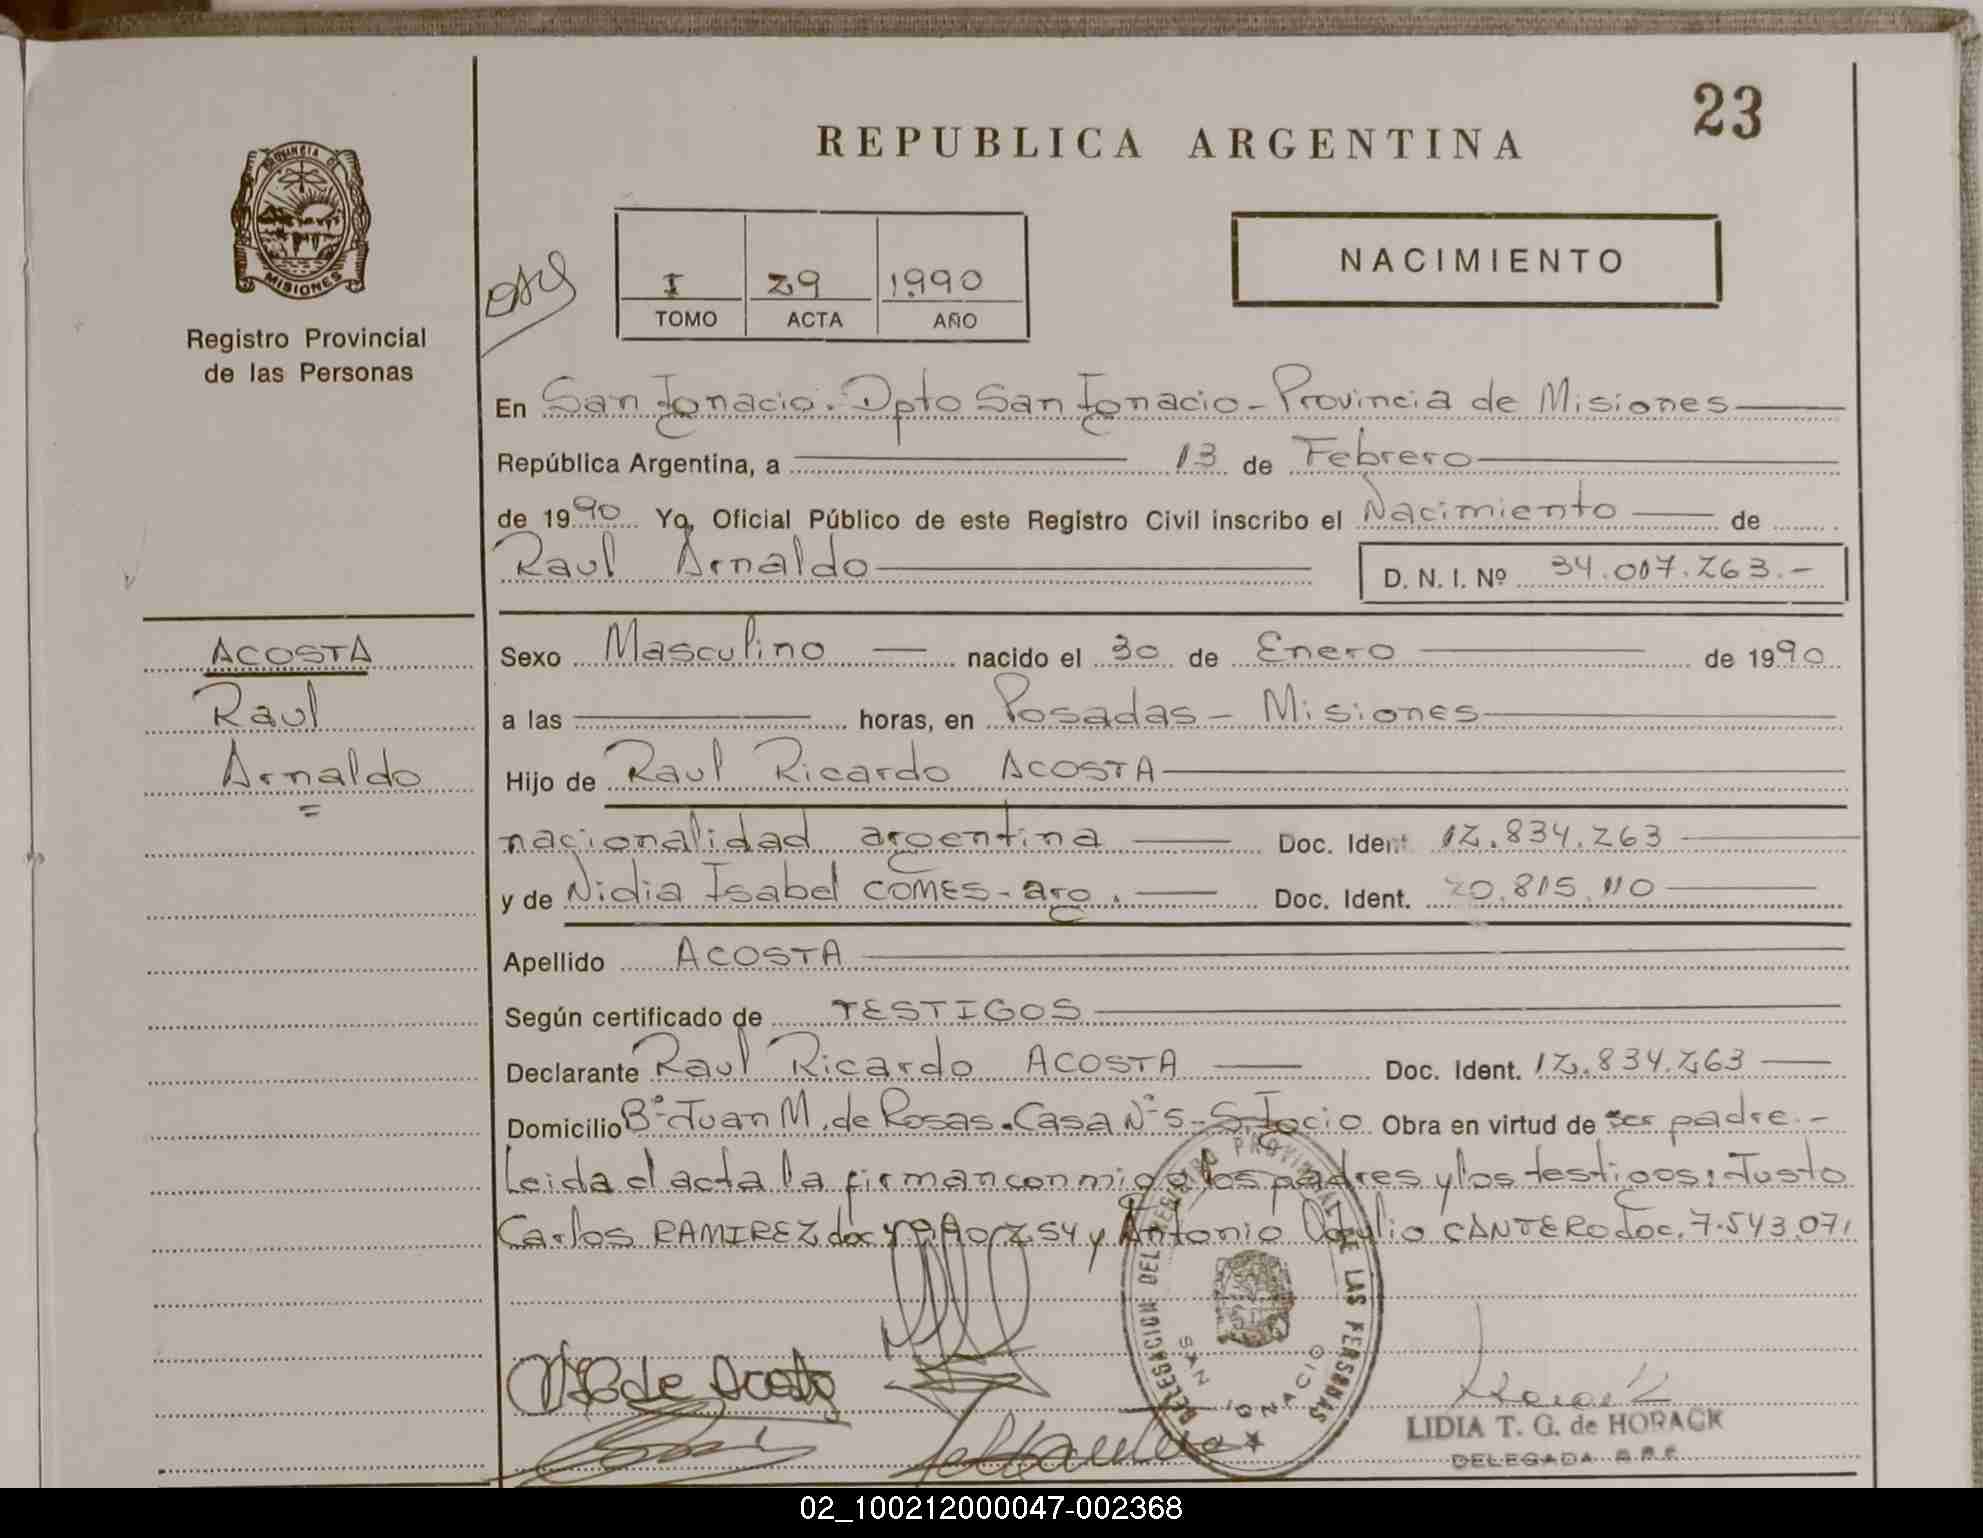 23
REPUBLICA ARGENTINA
PROVINCIA D
MISIONES
Registro Provincial
de las Personas
I 29 1990
TOMO ACTA AÑO
NACIMIENTO
En San Ignacio. Dpto San Ignacio - Provincia de Misiones
República Argentina, a 13 de Febrero
de 1990 Yo, Oficial Público de este Registro Civil inscribo el Nacimiento de
Raul Arnaldo
D. N. I. Nº 34.007.263.-
ACOSTA
Raul
Arnaldo
Sexo Masculino nacido el 30 de Enero de 1990
a las horas, en Posadas - Misiones
Hijo de Raul Ricardo ACOSTA
nacionalidad argentina Doc. Ident. 12.834.263
y de Nidia Isabel COMES - arg. Doc. Ident. 20.815.110
Apellido ACOSTA
Según certificado de TESTIGOS
Declarante Raul Ricardo ACOSTA Doc. Ident. 12.834.263
Domicilio Bº Juan M. de Rosas. Casa Nº 5 - S. Igcio Obra en virtud de ser padre.-
Leida el acta la firman conmigo los padres y los testigos: Justo
Carlos RAMIREZ doc y Antonio CANTERO doc. 7.543.071
DELEGACION DEL REGISTRO PROVINCIAL DE LAS PERSONAS
SAN IGNACIO
de Acosta
LIDIA T. G. de HORACK
DELEGADA R.P.P.
02_100212000047-002368